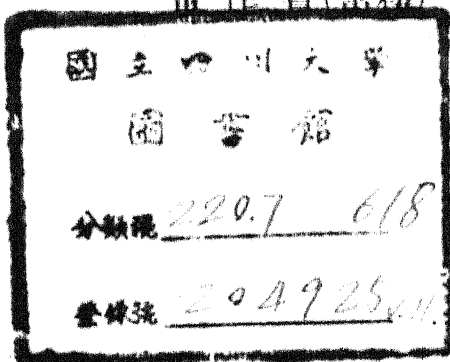 國立四川大學
圖書館
分類號 220.7 618
登錄號 204925